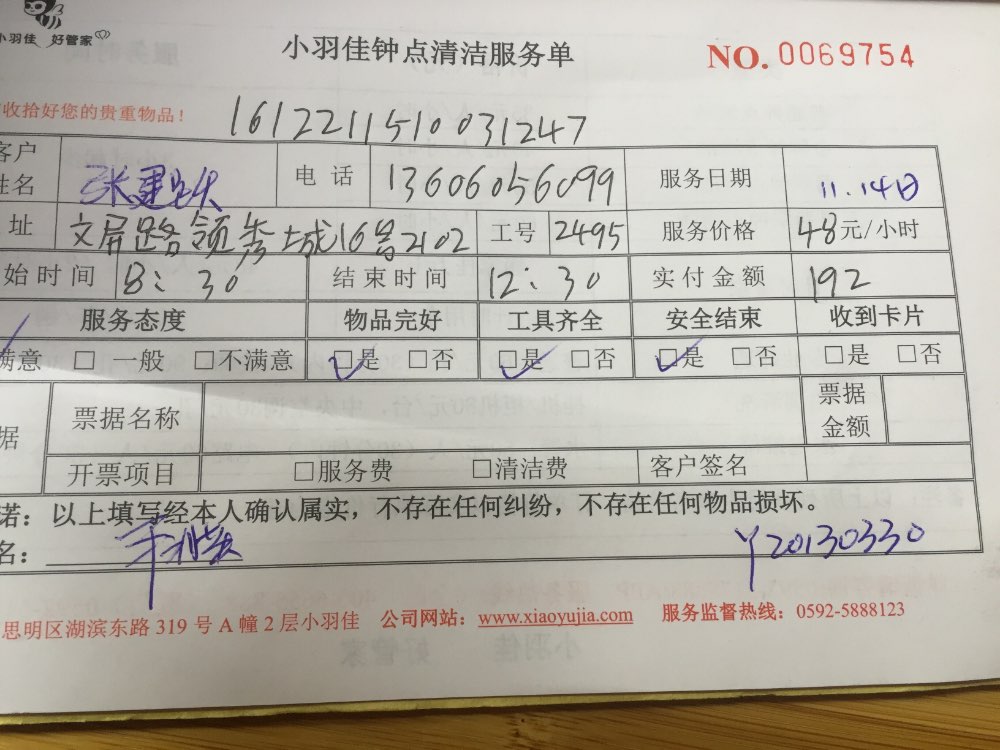 小羽佳 好管家
小羽佳钟点清洁服务单
NO. 0069754
收拾好您的贵重物品!
1612211510031247
客户姓名 张 电话 13606056099 服务日期 11.14日
址 文屏路领秀城16号2102 工号 2495 服务价格 48元/小时
始时间 8:30 结束时间 12:30 实付金额 192
服务态度 物品完好 工具齐全 安全结束 收到卡片
满意 □ 一般 □不满意 □是 □否 □是 □否 □是 □否 □是 □否
据 票据名称 票据金额
开票项目 □服务费 □清洁费 客户签名
诺:以上填写经本人确认属实,不存在任何纠纷,不存在任何物品损坏。
名: Y20130330
思明区湖滨东路 319 号 A 幢 2 层小羽佳 公司网站:www.xiaoyujia.com 服务监督热线:0592-5888123